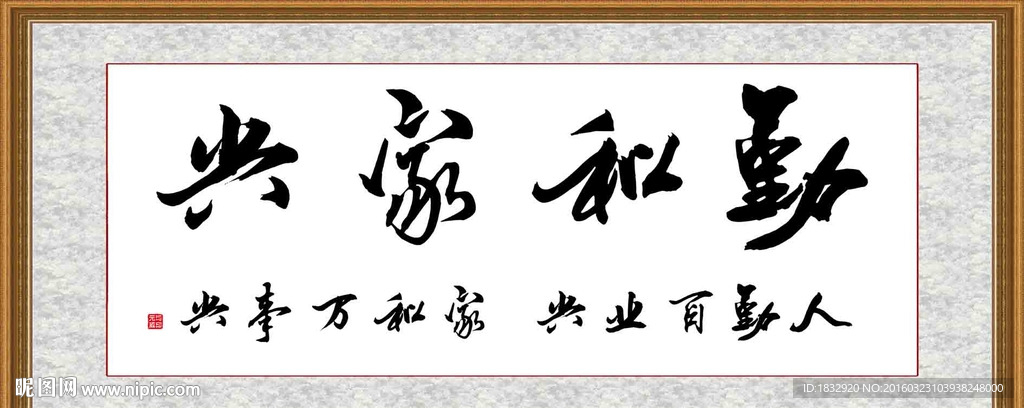 勤和家兴
人勤百业兴 家和万事兴
昵图网 www.nipic.com
ID:1832920 NO:20160323103938248000